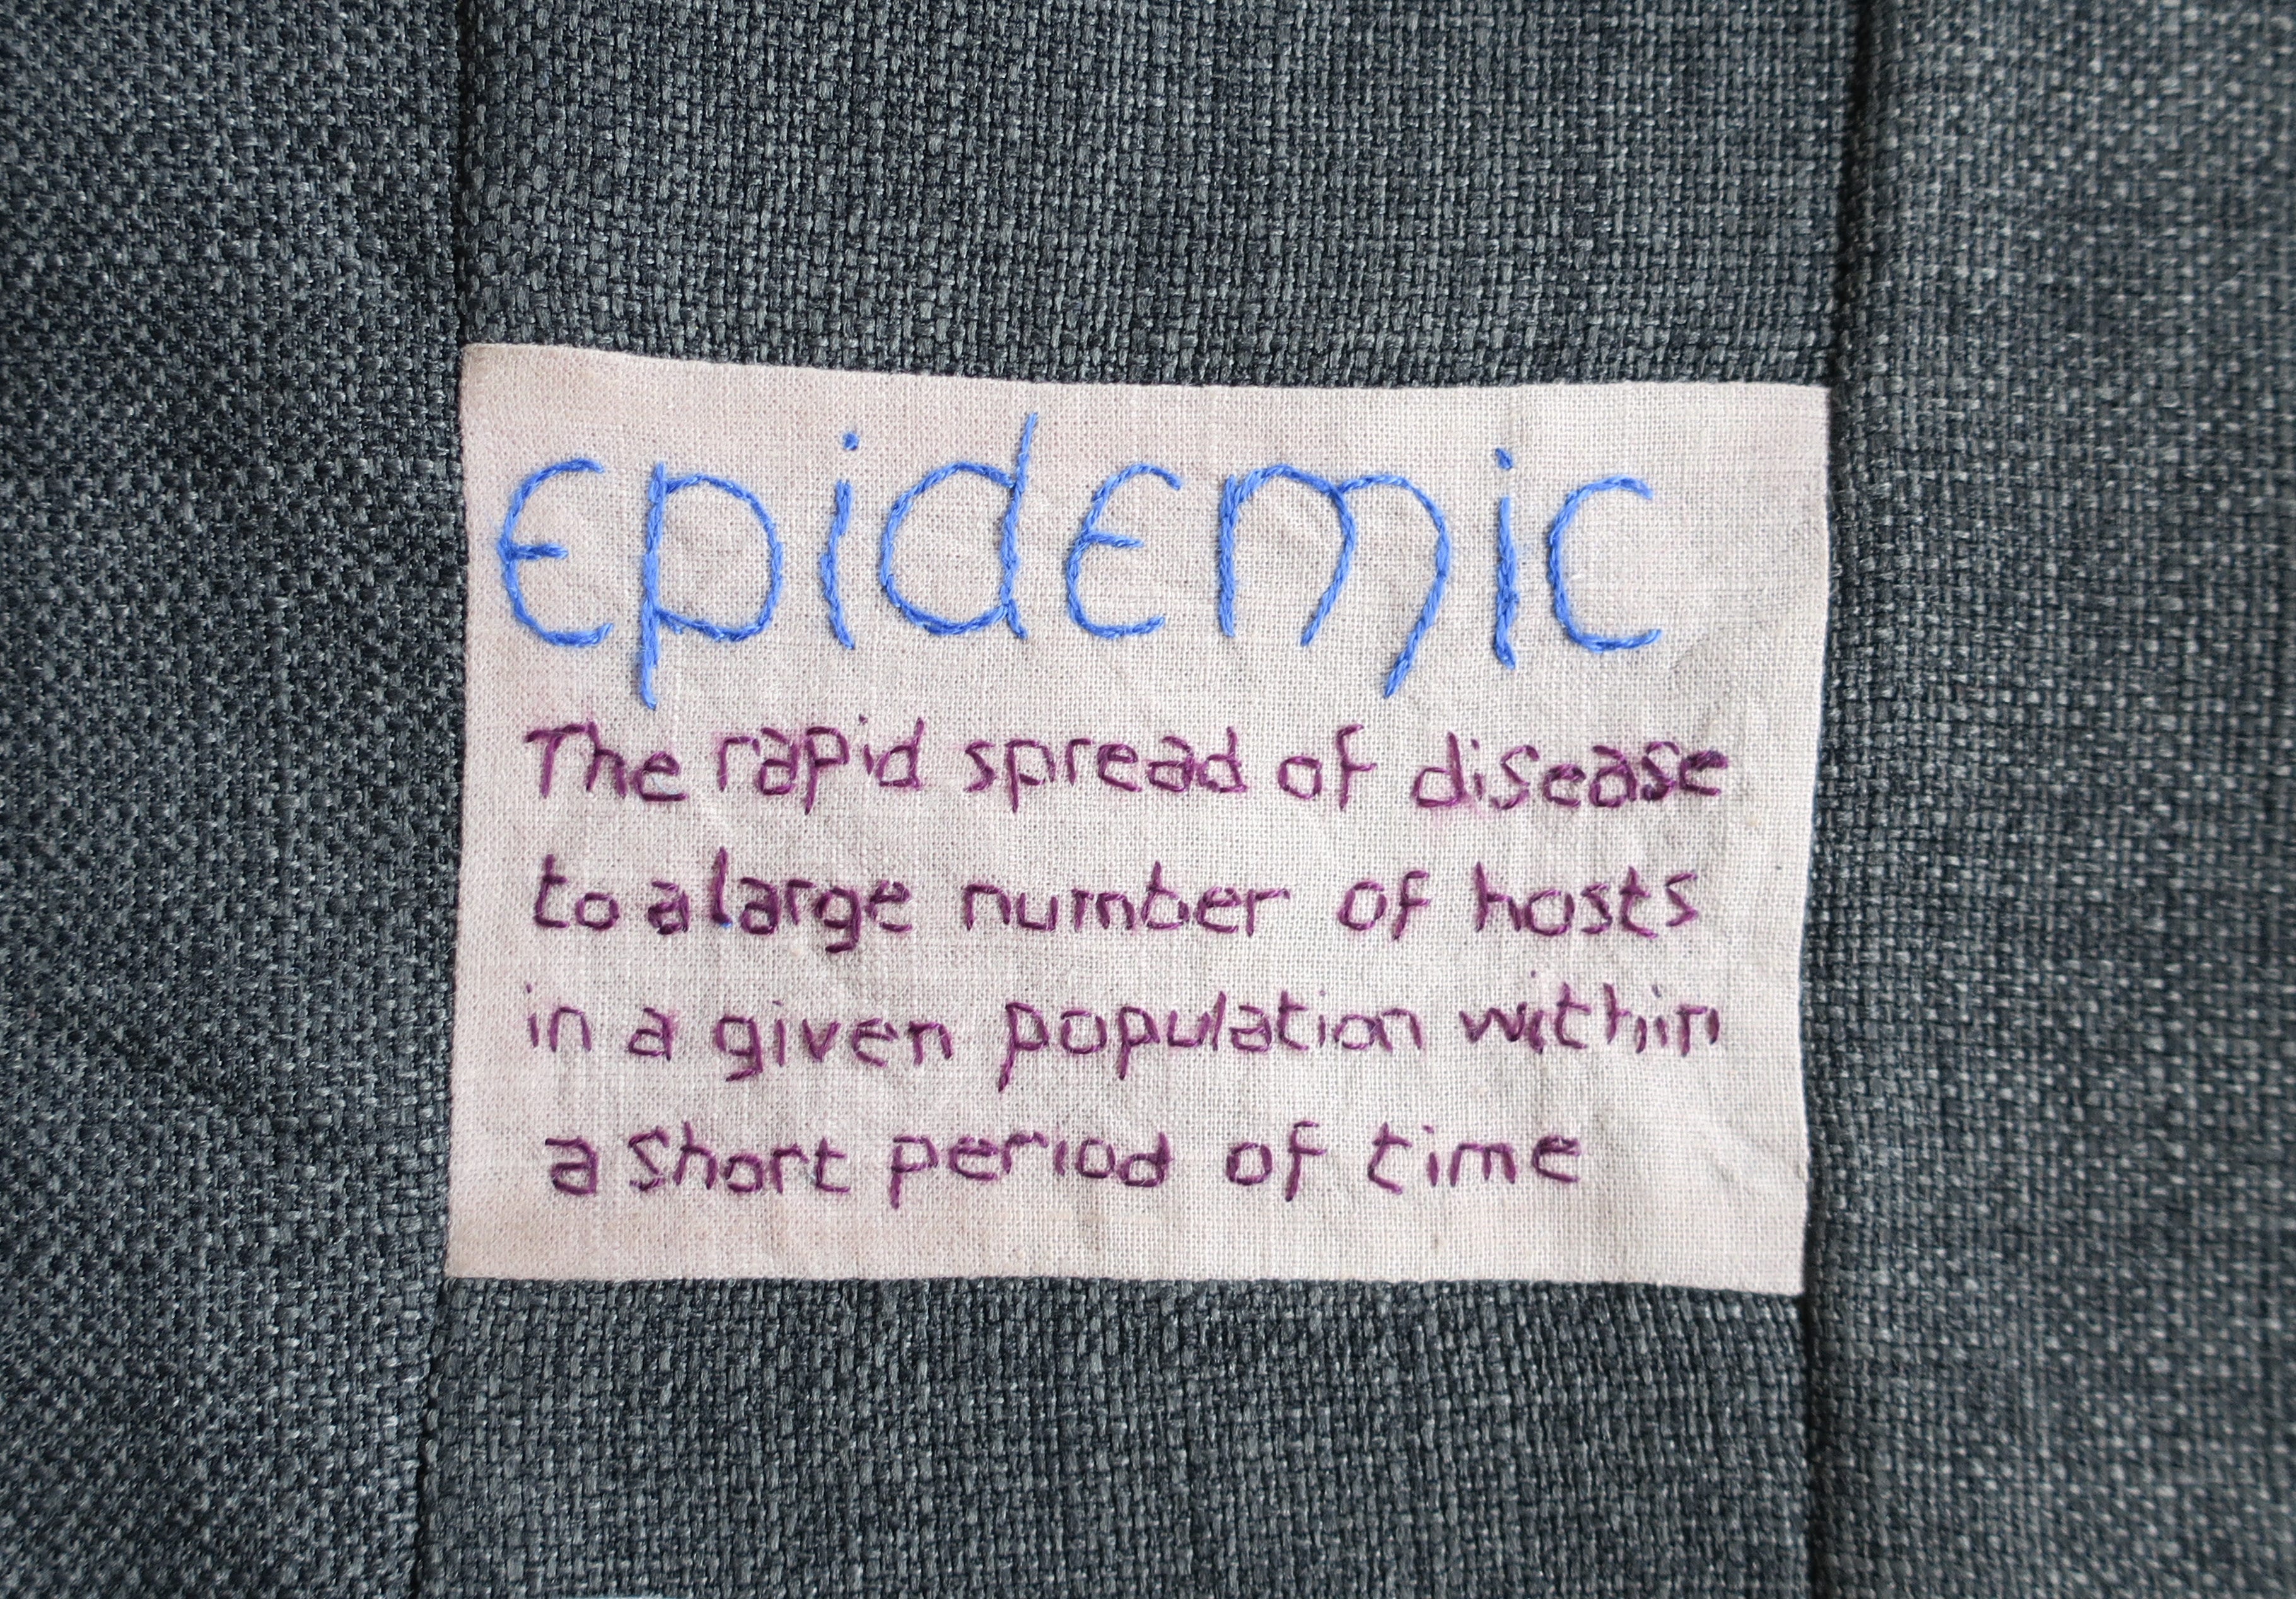 epidemic
The rapid spread of disease
to a large number of hosts
in a given population within
a short period of time